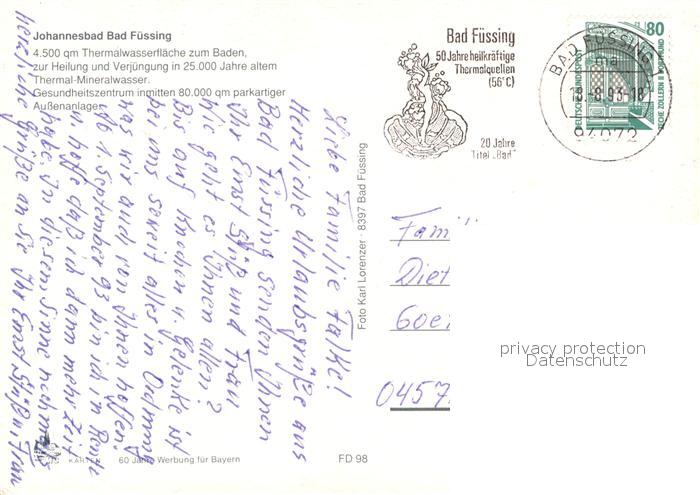 Johannesbad Bad Füssing
4.500 qm Thermalwasserfläche zum Baden,
zur Heilung und Verjüngung in 25.000 Jahre altem
Thermal-Mineralwasser.
Gesundheitszentrum inmitten 80.000 qm parkartiger
Außenanlagen
Liebe Familie Falke!
Herzliche Urlaubsgrüße aus
Bad Füssing senden Ihnen
Ihr Ernst Stiß und Frau
Wie geht es Ihnen allen?
Bis auf Knochen u. Gelenke ist
bei uns soweit alles in Ordnung
was wir auch von Ihnen hoffen.
Ab 1. September 93 bin ich in Rente
u. hoffe daß ich dann mehr Zeit
habe. In diesem Sinne nochmals
herzliche Grüße an Sie Ihr Ernst Stiß u. Frau
KARTEN
60 Jahre Werbung für Bayern
FD 98
Foto Karl Lorenzer · 8397 Bad Füssing
Bad Füssing
50 Jahre heilkräftige
Thermalquellen
(56°C)
20 Jahre
Titel „Bad"
BAD FÜSSING 1
ma
-8.93-18
94072
80
DEUTSCHE BUNDESPOST
Fam
Diet
Goei
0457
privacy protection
Datenschutz